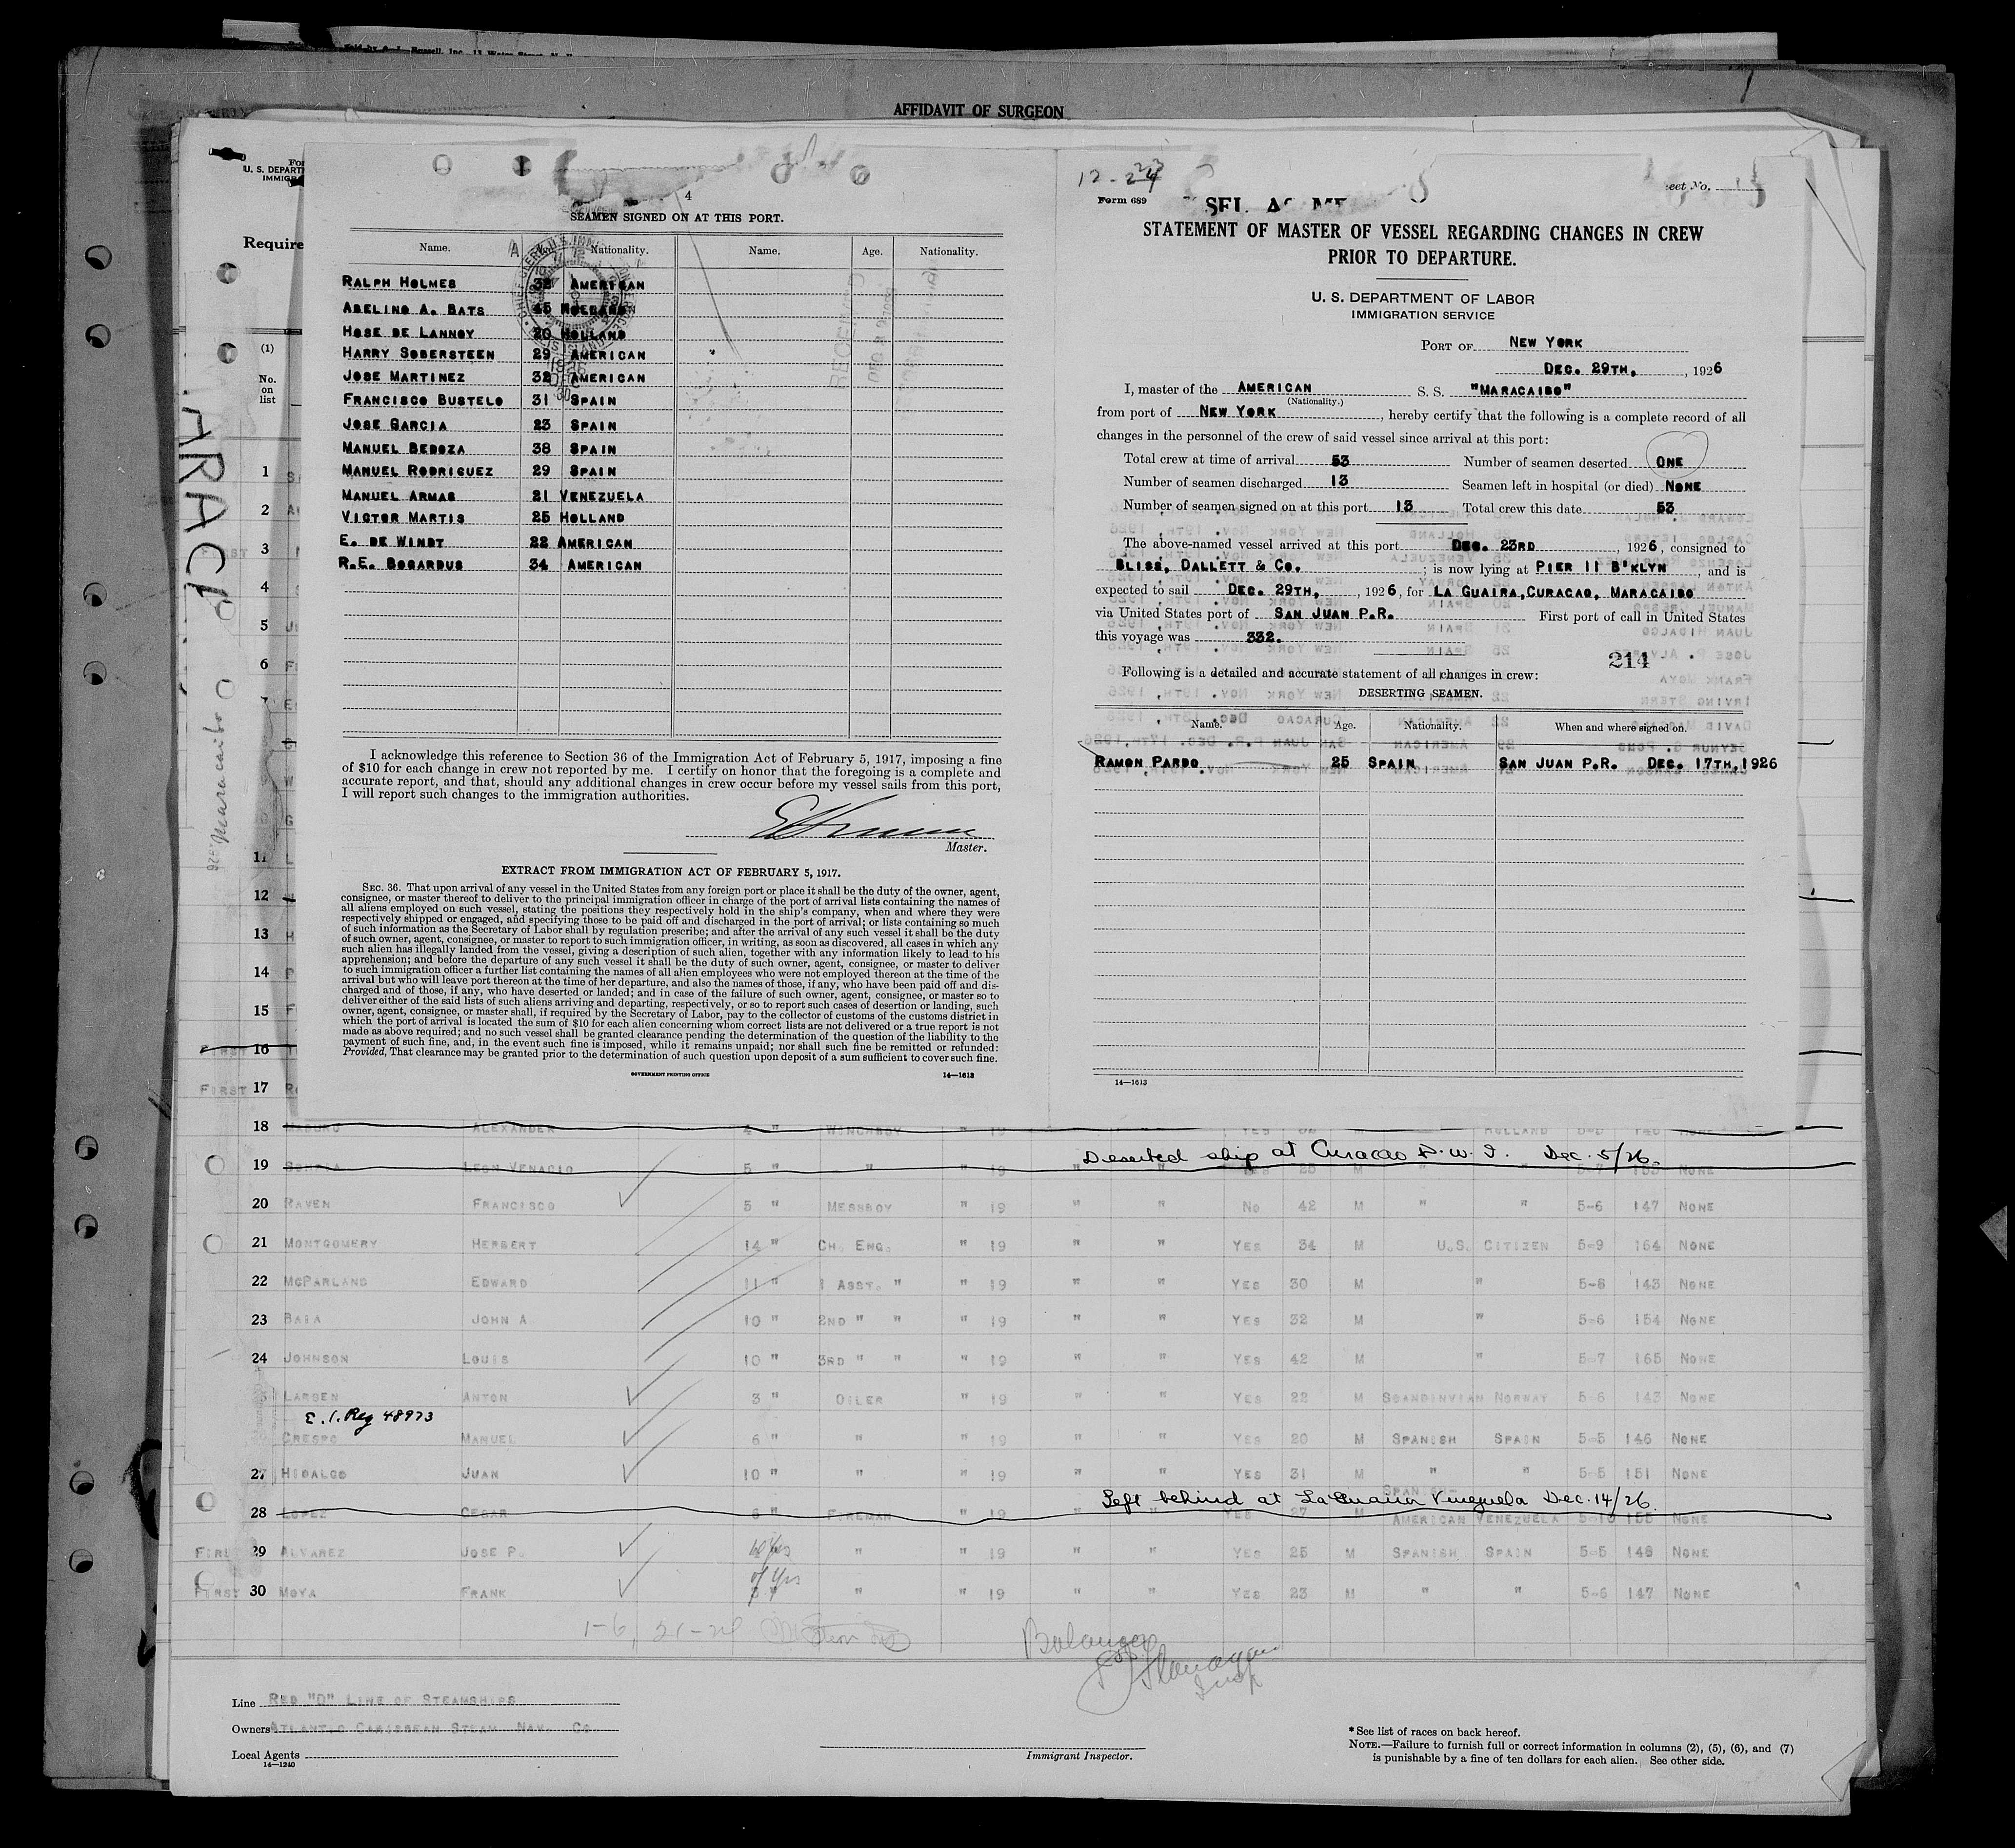 AFFIDAVIT OF SURGEON
U. S. DEPART
IMMIGRA
Require
(1)
No.
on
list
4
SEAMEN SIGNED ON AT THIS PORT.
Name. Nationality. Name. Age. Nationality.
RALPH HOLMES 38 AMERICAN
ABELINO A. BATS 45 HOLLAND
HOSE DE LANNOY 20 HOLLAND
HARRY SOBERSTEEN 29 AMERICAN
JOSE MARTINEZ 32 AMERICAN
FRANCISCO BUSTELO 31 SPAIN
JOSE GARCIA 23 SPAIN
MANUEL BEDOZA 38 SPAIN
MANUEL RODRIGUEZ 29 SPAIN
MANUEL ARMAS 21 VENEZUELA
VICTOR MARTIS 25 HOLLAND
E. DE WINDT 22 AMERICAN
R.E. BOGARDUS 34 AMERICAN
I acknowledge this reference to Section 36 of the Immigration Act of February 5, 1917, imposing a fine
of $10 for each change in crew not reported by me. I certify on honor that the foregoing is a complete and
accurate report, and that, should any additional changes in crew occur before my vessel sails from this port,
I will report such changes to the immigration authorities.
Master.
EXTRACT FROM IMMIGRATION ACT OF FEBRUARY 5, 1917.
SEC. 36. That upon arrival of any vessel in the United States from any foreign port or place it shall be the duty of the owner, agent,
consignee, or master thereof to deliver to the principal immigration officer in charge of the port of arrival lists containing the names of
all aliens employed on such vessel, stating the positions they respectively hold in the ship's company, when and where they were
respectively shipped or engaged, and specifying those to be paid off and discharged in the port of arrival; or lists containing so much
of such information as the Secretary of Labor shall by regulation prescribe; and after the arrival of any such vessel it shall be the duty
of such owner, agent, consignee, or master to report to such immigration officer, in writing, as soon as discovered, all cases in which any
such alien has illegally landed from the vessel, giving a description of such alien, together with any information likely to lead to his
apprehension; and before the departure of any such vessel it shall be the duty of such owner, agent, consignee, or master to deliver
to such immigration officer a further list containing the names of all alien employees who were not employed thereon at the time of the
arrival but who will leave port thereon at the time of her departure, and also the names of those, if any, who have been paid off and dis-
charged and of those, if any, who have deserted or landed; and in case of the failure of such owner, agent, consignee, or master so to
deliver either of the said lists of such aliens arriving and departing, respectively, or so to report such cases of desertion or landing, such
owner, agent, consignee, or master shall, if required by the Secretary of Labor, pay to the collector of customs of the customs district in
which the port of arrival is located the sum of $10 for each alien concerning whom correct lists are not delivered or a true report is not
made as above required; and no such vessel shall be granted clearance pending the determination of the question of the liability to the
payment of such fine, and, in the event such fine is imposed, while it remains unpaid; nor shall such fine be remitted or refunded:
Provided, That clearance may be granted prior to the determination of such question upon deposit of a sum sufficient to cover such fine.
GOVERNMENT PRINTING OFFICE 14—1613
Form 689
eet No.
STATEMENT OF MASTER OF VESSEL REGARDING CHANGES IN CREW
PRIOR TO DEPARTURE.
U. S. DEPARTMENT OF LABOR
IMMIGRATION SERVICE
PORT OF NEW YORK
DEC. 29TH, , 1926
I, master of the AMERICAN S. S. "MARACAIBO"
(Nationality.)
from port of NEW YORK , hereby certify that the following is a complete record of all
changes in the personnel of the crew of said vessel since arrival at this port:
Total crew at time of arrival 53 Number of seamen deserted ONE
Number of seamen discharged 13 Seamen left in hospital (or died) NONE
Number of seamen signed on at this port 13 Total crew this date 53
The above-named vessel arrived at this port DEC. 23RD , 1926, consigned to
BLISS, DALLETT & CO. ; is now lying at PIER 11 B'KLYN , and is
expected to sail DEC. 29TH, , 1926, for LA GUAIRA,CURACAO, MARACAIBO
via United States port of SAN JUAN P.R. First port of call in United States
this voyage was 332.
214
Following is a detailed and accurate statement of all changes in crew:
DESERTING SEAMEN.
Name. Age. Nationality. When and where signed on.
RAMON PARDO 25 SPAIN SAN JUAN P.R. DEC. 17TH,1926
14—1613
1
2
3
4
5
6
7
11
12
13
14
15
16
FIRST 17
18 ALEXANDER 4 " WINCHBOY " 19 HOLLAND
Deserted ship at Curacao D.W.I. Dec. 5/26.
19 LEON VENACIO 5 " " " 19 NONE
20 RAVEN FRANCISCO 5 " MESSBOY " 19 " " NO 42 M " " 5-6 147 NONE
21 MONTGOMERY HERBERT 14 " CH. ENG. " 19 " " YES 34 M U.S. CITIZEN 5-9 164 NONE
22 MCPARLAND EDWARD 11 " 1 ASST. " " 19 " " YES 30 M " 5-8 143 NONE
23 BAIA JOHN A. 10 " 2ND " " " 19 " " YES 32 M " 5-6 154 NONE
24 JOHNSON LOUIS 10 " 3RD " " " 19 " " YES 42 M " 5-7 165 NONE
LARSEN ANTON 3 " OILER " 19 " " YES 22 M SCANDINVIAN NORWAY 5-6 143 NONE
E.I. Reg 48973
CRESPO MANUEL 6 " " " 19 " " YES 20 M SPANISH SPAIN 5-5 146 NONE
27 HIDALGO JUAN 10 " " " 19 " " YES 31 M " " 5-5 151 NONE
Left behind at LaGuaira Venezuela Dec. 14/26.
28 LOPEZ CESAR 6 " FIREMAN " 19 YES 27 M SPANISH-AMERICAN VENEZUELA 5-10 155 NONE
29 ALVAREZ JOSE P. " " 19 " " YES 25 M SPANISH SPAIN 5-5 148 NONE
FIRST 30 MOYA FRANK " " 19 " " YES 23 M " " 5-6 147 NONE
1-6, 21-24
Line RED "D" LINE OF STEAMSHIPS
Owners ATLANTIC CARIBBEAN STEAM NAV. CO
Local Agents
14—1240
Immigrant Inspector.
* See list of races on back hereof.
NOTE.—Failure to furnish full or correct information in columns (2), (5), (6), and (7)
is punishable by a fine of ten dollars for each alien. See other side.